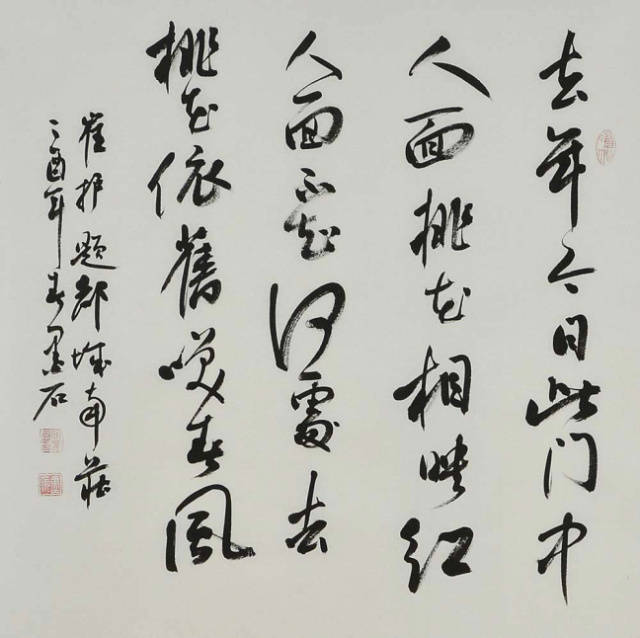 去年今日此门中
人面桃花相映红
人面不知何處去
桃花依舊咲春風
崔护题都城南莊
乙酉年春墨石